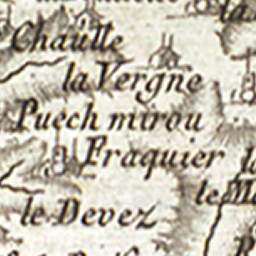 la
Chaulle
la Vergne
Puech mirou
Fraquier
le Devez